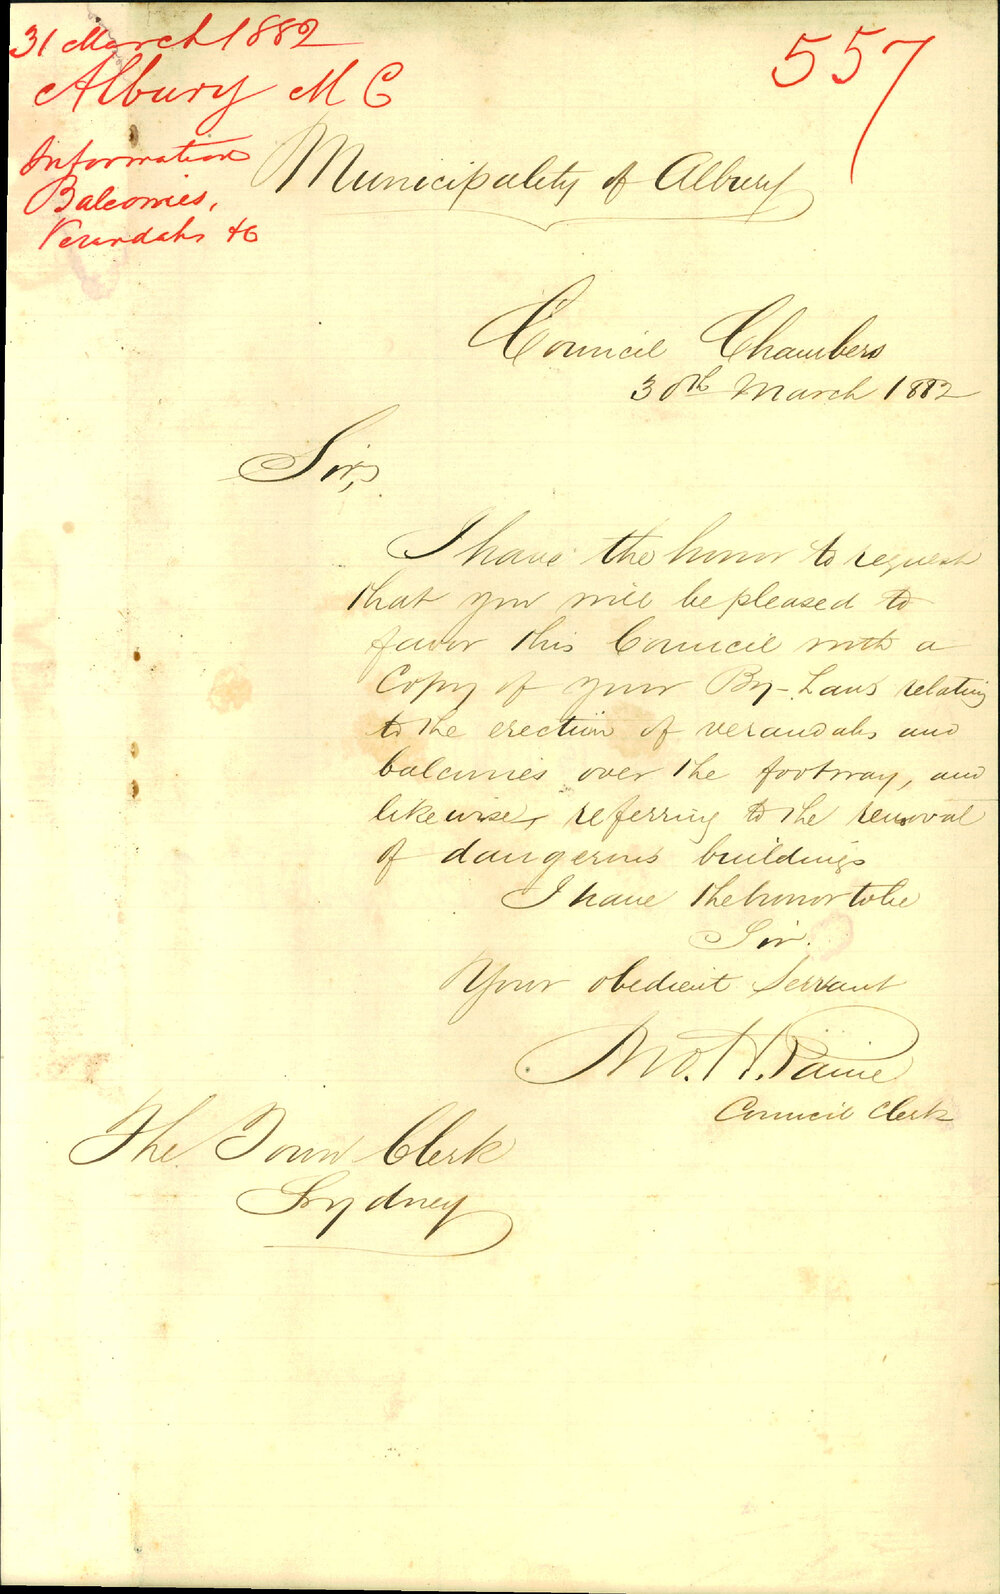 31 March 1882
Albury M C
Information
Balconies,
Verandahs &c
557
Municipality of Albury
Council Chambers
30th March 1882
Sir,
I have the honor to request
that you will be pleased to
favor this Council with a
Copy of your By-Laws relating
to the erection of verandahs and
balconies over the footway, and
likewise, referring to the removal
of dangerous buildings
I have the honor to be
Sir.
Your obedient Servant
Jno. H. Paine
Council Clerk
The Town Clerk
Sydney